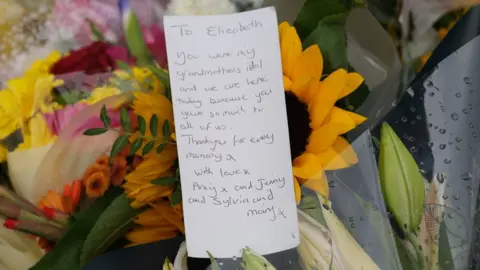 To Elizabeth
You were my
grandmothers idol
and we are here
today because you
gave so much to
all of us.
Thankyou for every
memory x
with love x
and Jenny
and Sylvia and
many x